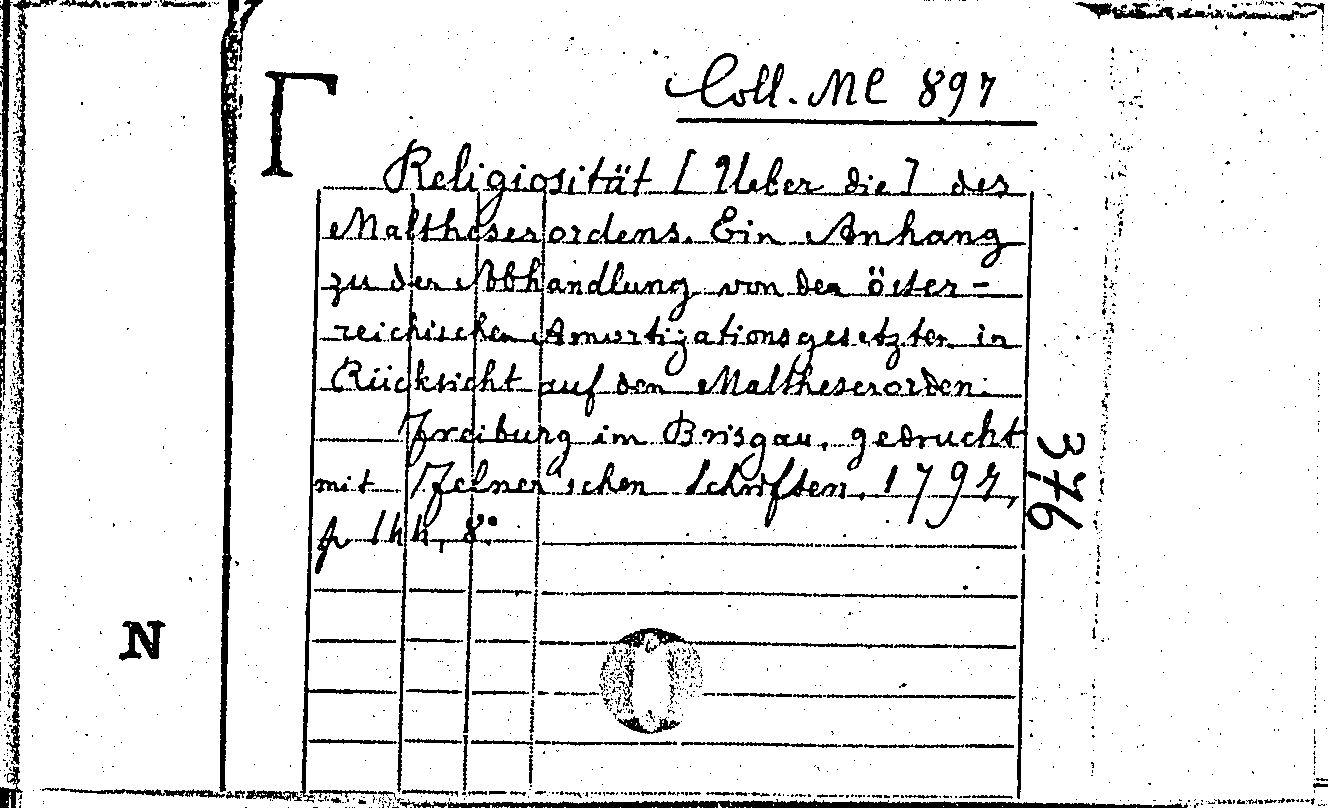 Coll. MC 897
Religiosität [Ueber die] des
Maltheserordens. Ein Anhang
zu der Abhandlung von den öster-
reichischen Amortizationsgesetzten in
Rücksicht auf den Maltheserorden.
Freiburg im Brisgau, gedruckt
mit Felner'schen Schriften, 1797,
8°.
376
N